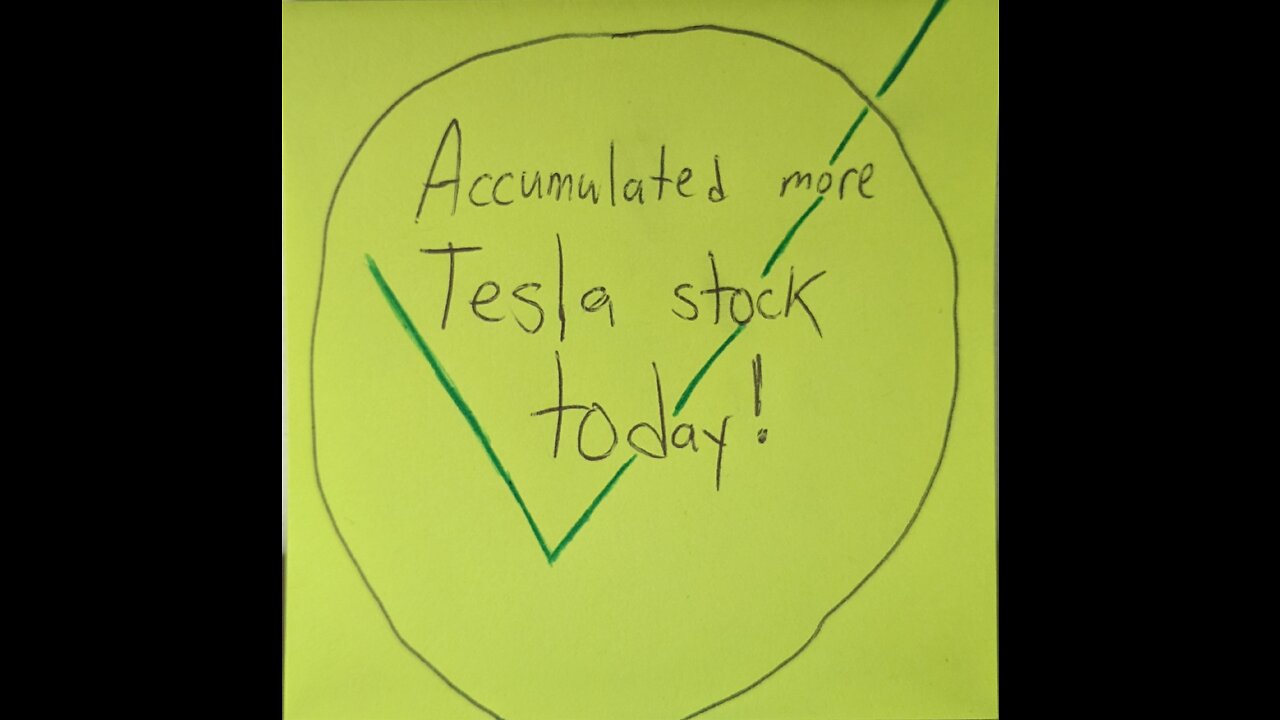 Accumulated more
Tesla stock
today!